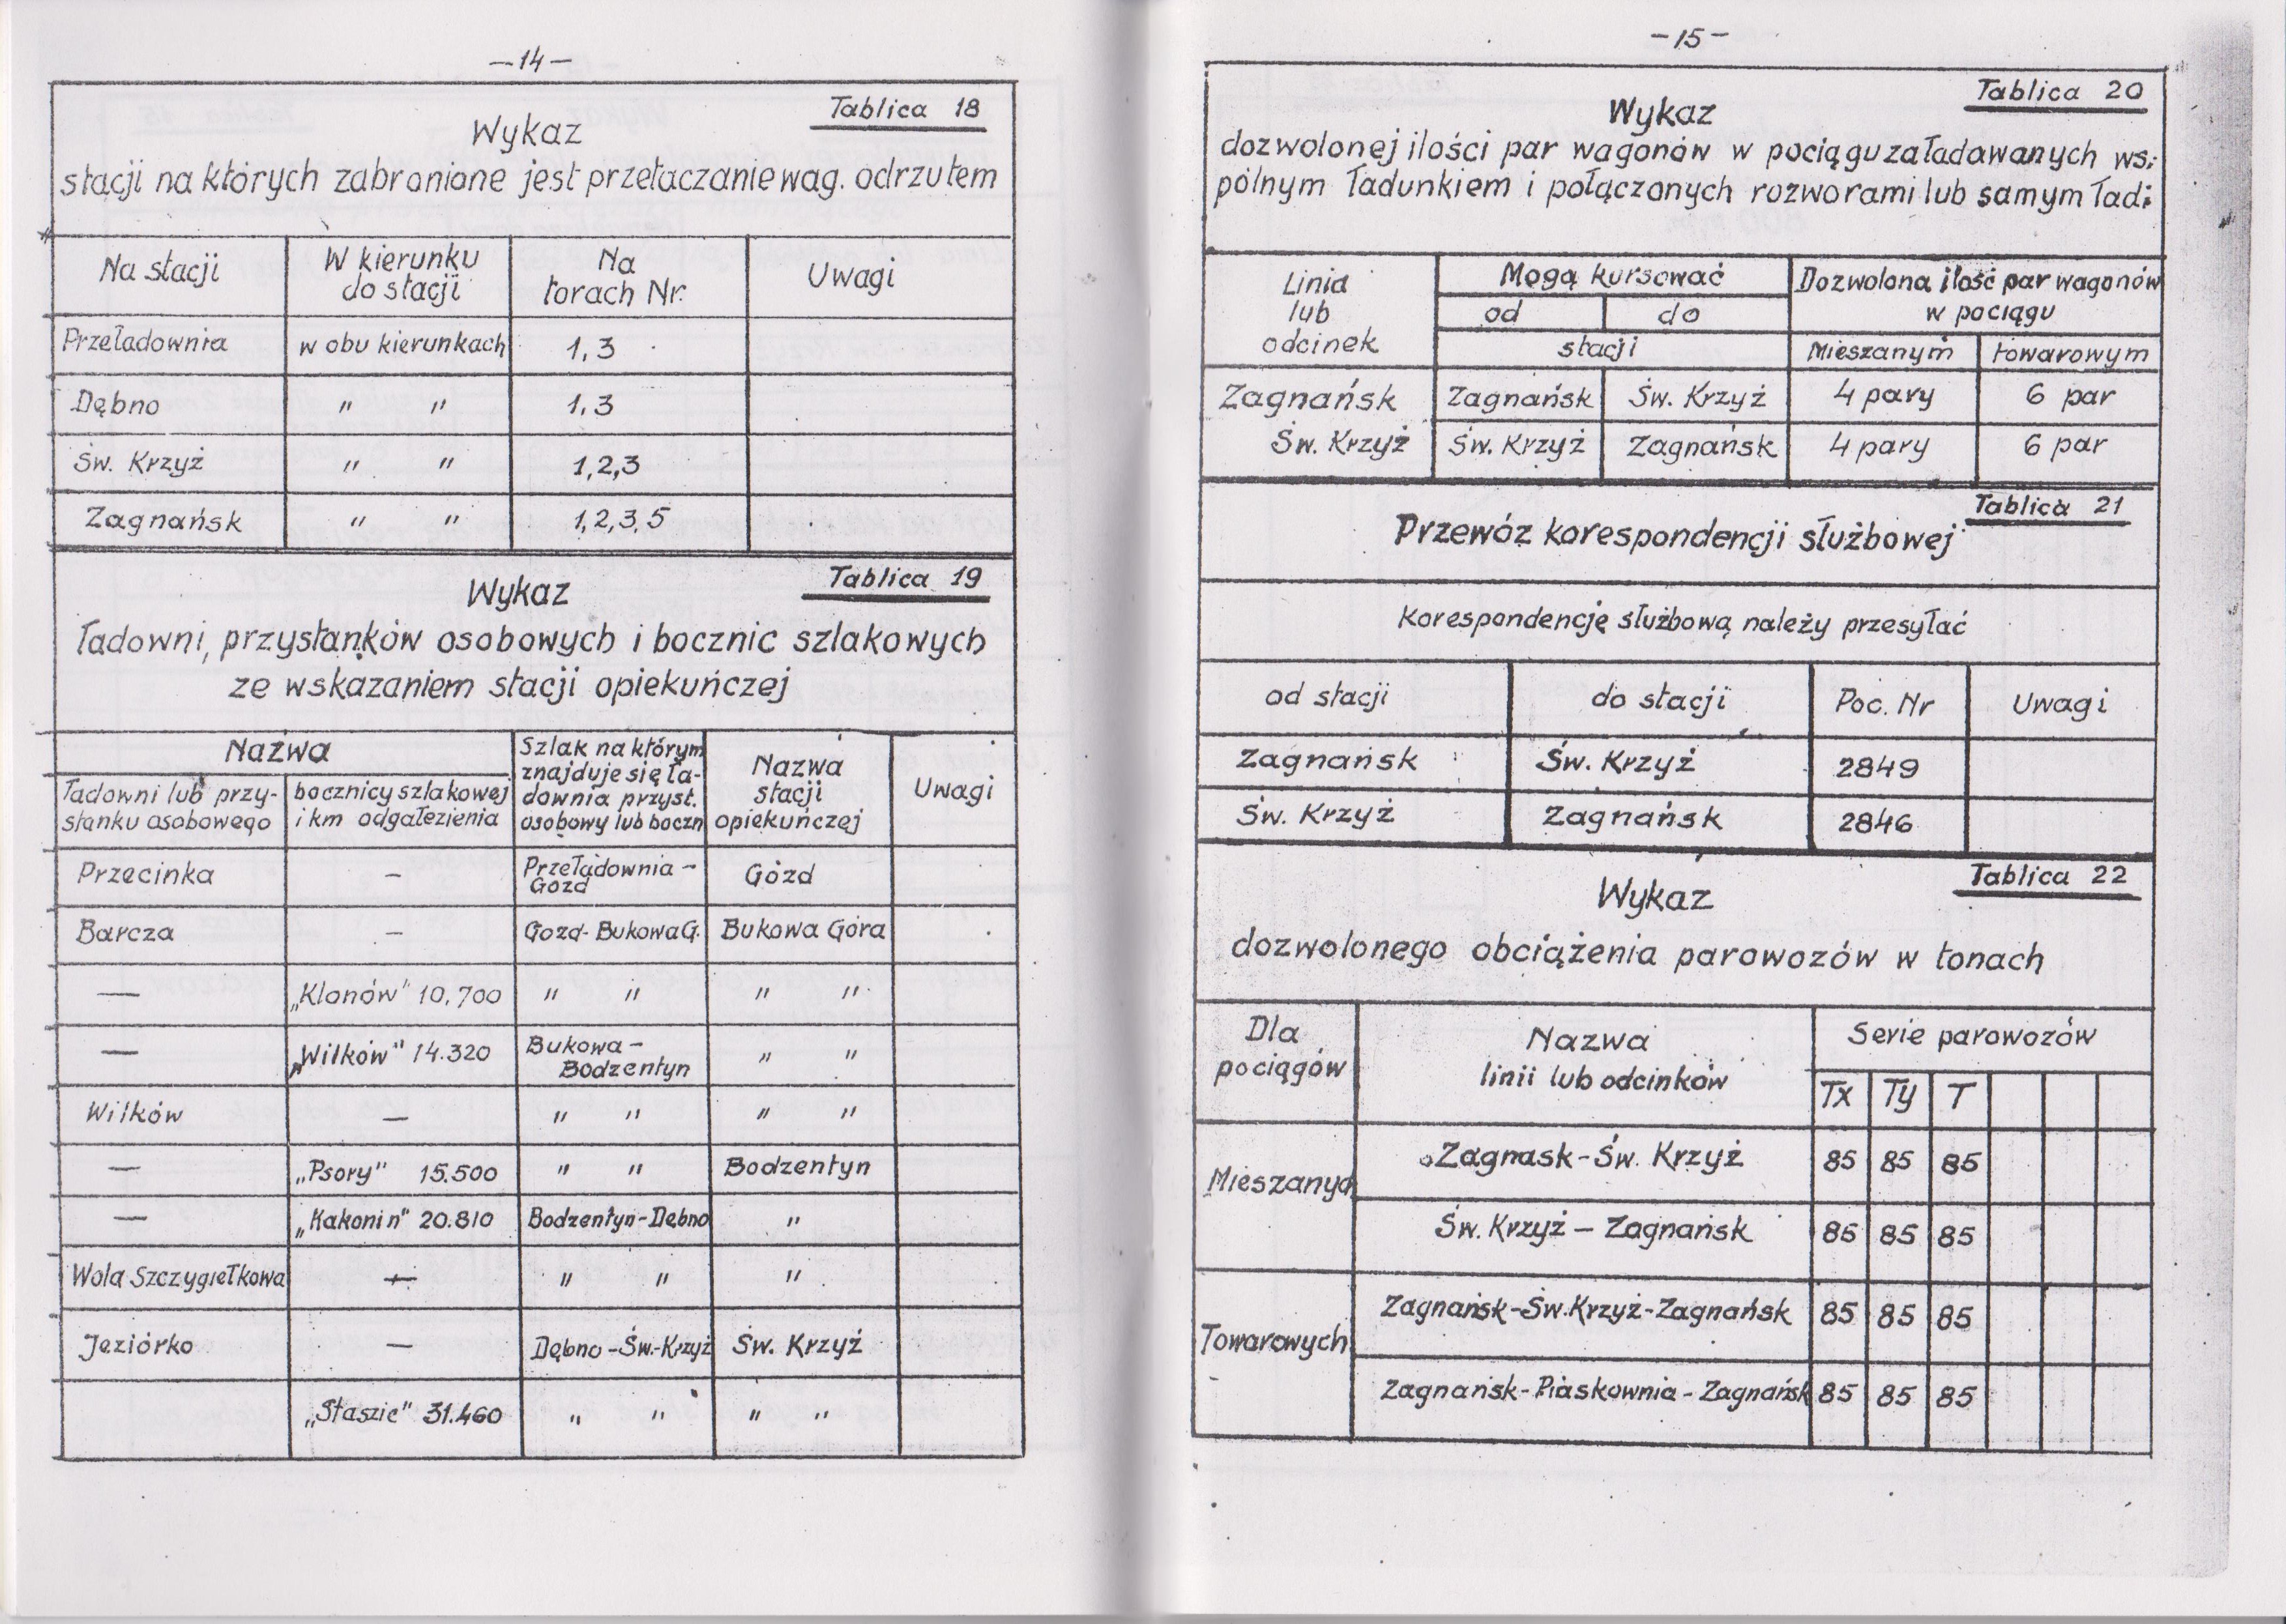 —14—
Tablica 18
Wykaz
stacji na których zabronione jest przetaczanie wag. odrzutem
Na stacji
W kierunku
do stacji
Na
torach Nr.
Uwagi
Przeładownia w obu kierunkach 1, 3
Dębno " " 1, 3
Św. Krzyż " " 1, 2, 3
Zagnańsk " " 1, 2, 3, 5
Tablica 19
Wykaz
ładowni, przystanków osobowych i bocznic szlakowych
ze wskazaniem stacji opiekuńczej
Nazwa
ładowni lub przy-
stanku osobowego
bocznicy szlakowej
i km odgałezienia
Szlak na którym
znajduje się ła-
downia przyst.
osobowy lub boczn
Nazwa
stacji
opiekuńczej
Uwagi
Przecinka — Przeładownia – Gózd
Gozd
Barcza — Gozd- Bukowa G. Bukowa Góra
— „Klonów" 10,700 " " " "
— „Wilków" 14.320 Bukowa – " "
Bodzentyn
Wilków — " " " "
— „Psory" 15.500 " " Bodzentyn
— „Kakonin" 20.810 Bodzentyn-Dębno "
Wola Szczygiełkowa — " " "
Jeziórko — Dębno -Św.-Krzyż Św. Krzyż
„Staszic" 31.460 " " " "
—15—
Tablica 20
Wykaz
dozwolonej ilości par wagonów w pociągu załadawanych ws.
pólnym ładunkiem i połączonych rozworami lub samym ład:
Linia
lub
odcinek
Mogą kursować
od do
stacji
Dozwolona ilość par wagonów
w pociągu
Mieszanym towarowym
Zagnańsk Zagnańsk Św. Krzyż 4 pary 6 par
Św. Krzyż Św. Krzyż Zagnańsk 4 pary 6 par
Tablica 21
Przewóz korespondencji służbowej
Korespondencję służbową należy przesyłać
od stacji do stacji Poc. Nr Uwagi
Zagnańsk Św. Krzyż 2849
Św. Krzyż Zagnańsk 2846
Tablica 22
Wykaz
dozwolonego obciążenia parowozów w tonach
Dla
pociągów
Nazwa
linii lub odcinków
Serie parowozów
Tx Ty T
Mieszanych
Zagnask-Św. Krzyż 85 85 85
Św. Krzyż – Zagnańsk 85 85 85
Towarowych
Zagnańsk-Św.Krzyż-Zagnańsk 85 85 85
Zagnańsk-Piaskownia-Zagnańsk 85 85 85